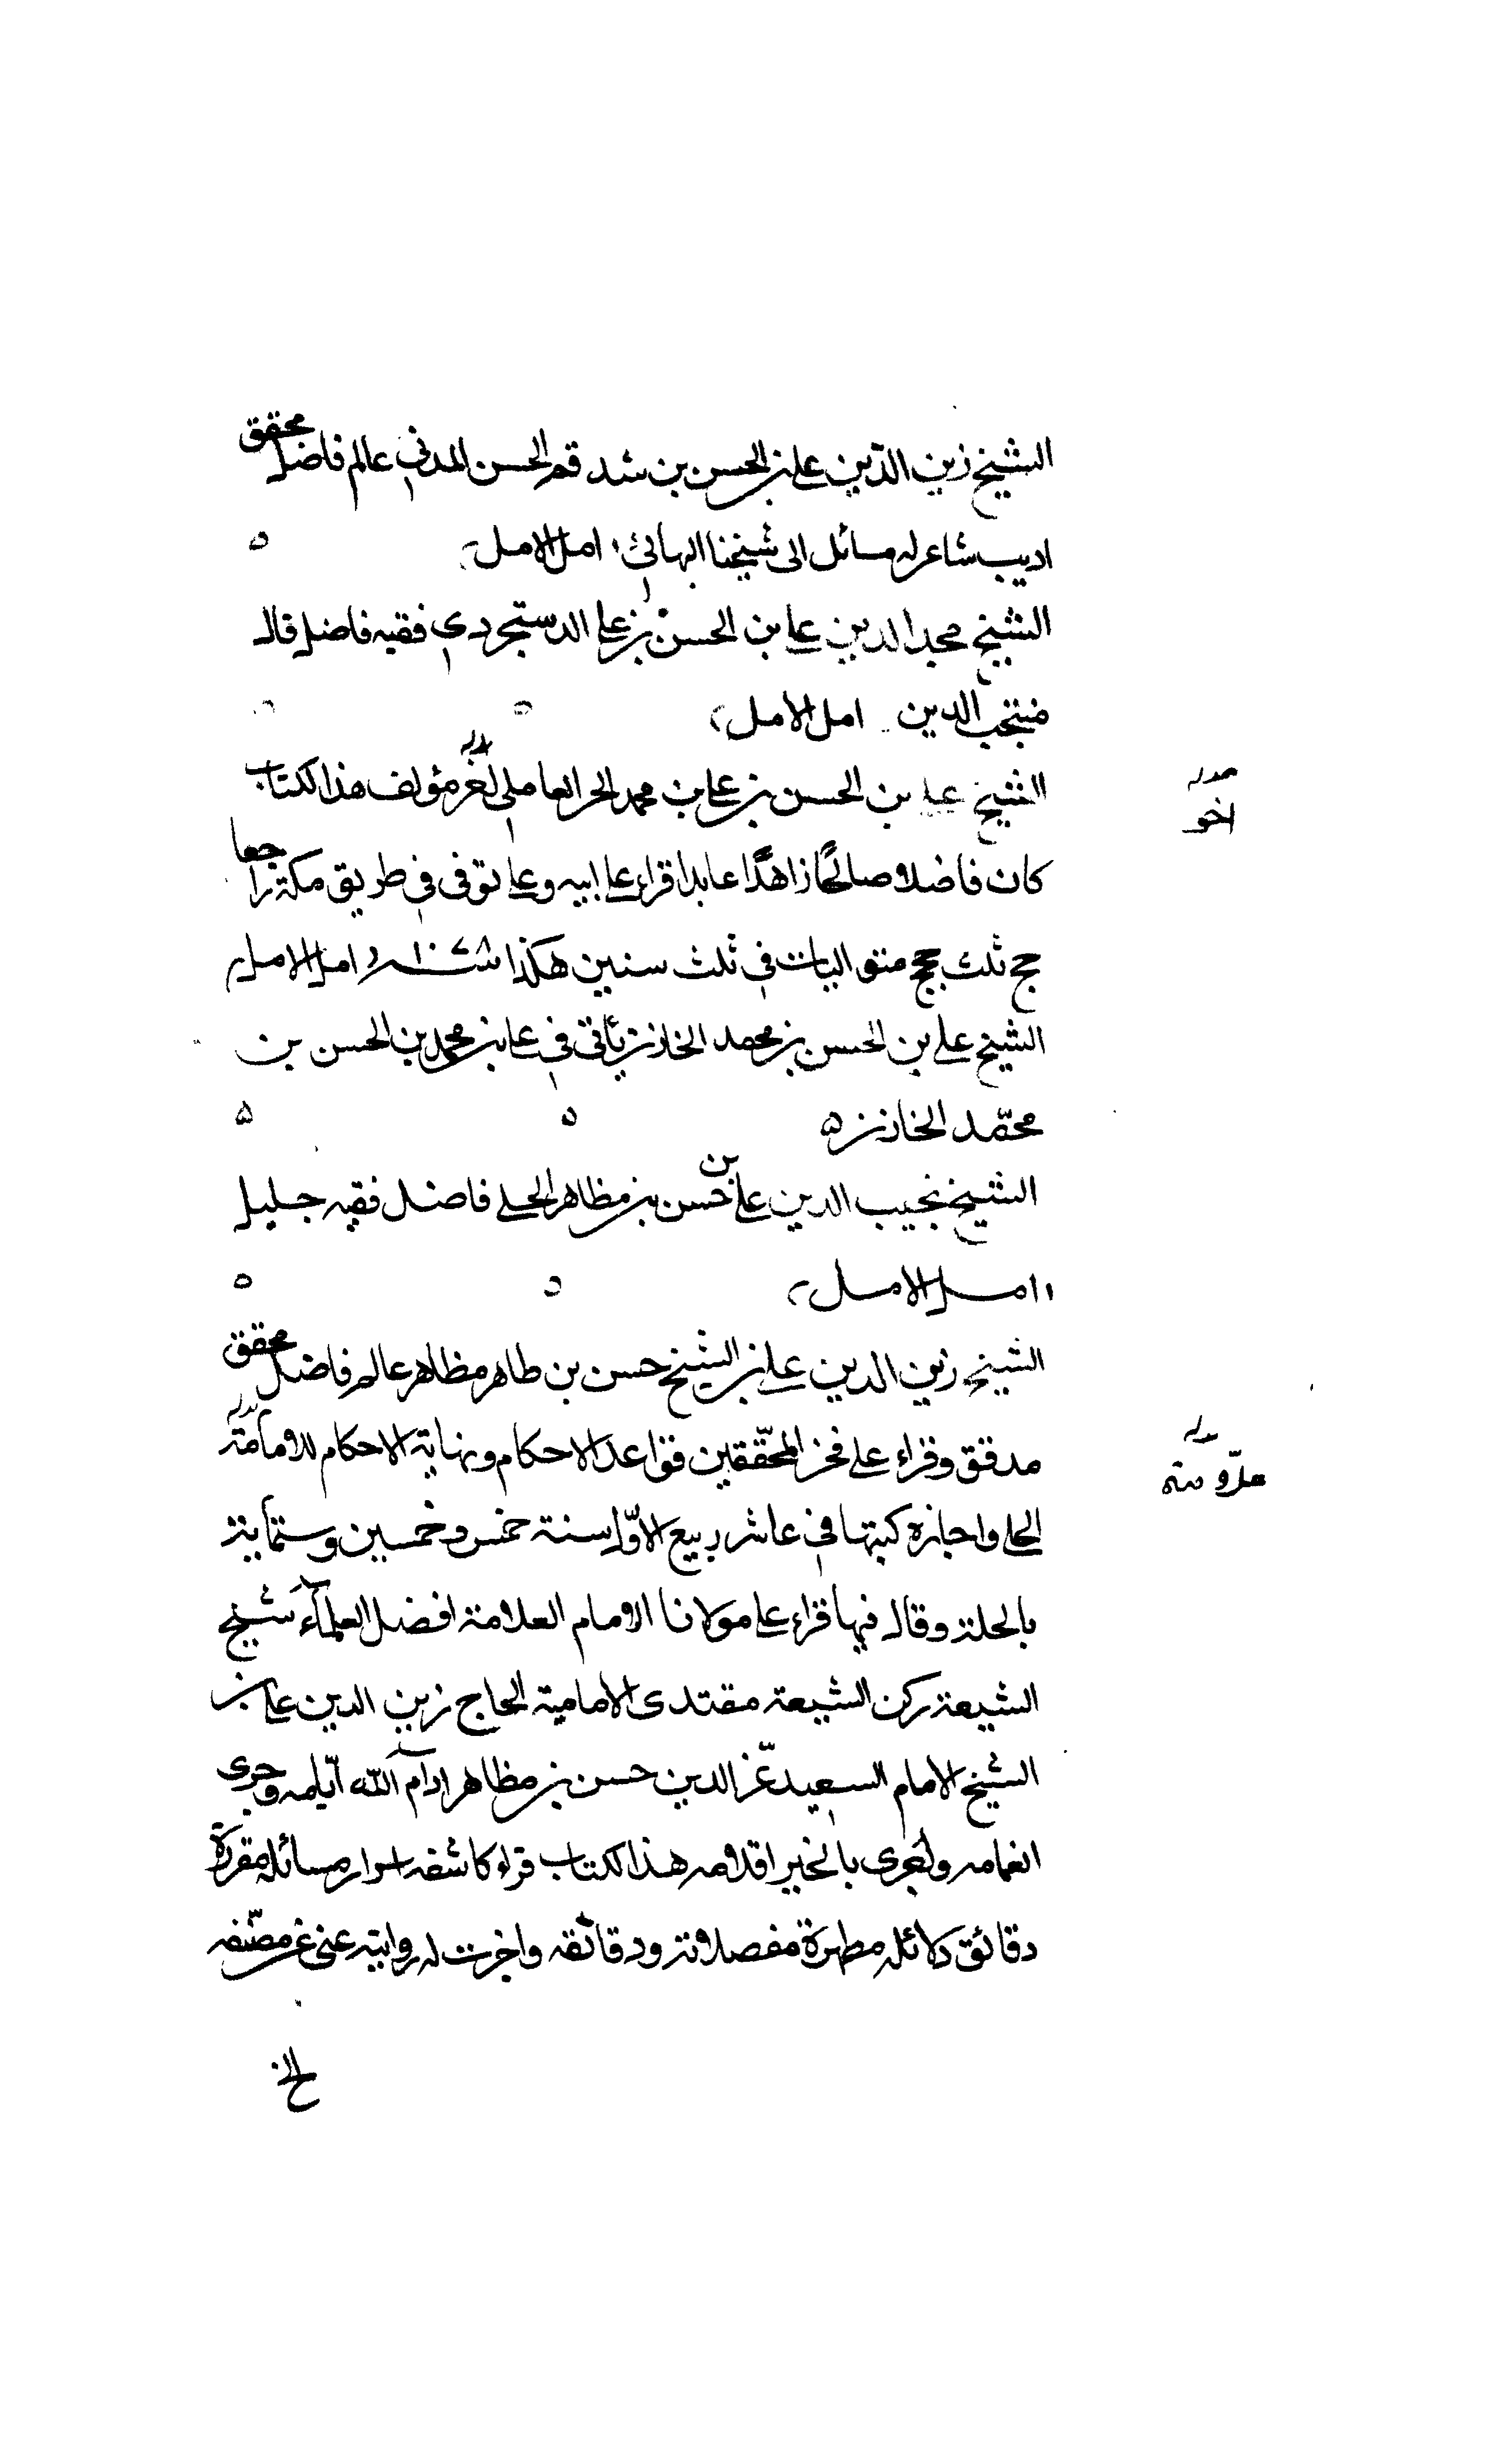 الشيخ زين الدّين علي بن الحسن بن شدقم الحسن المدني عالم فاضل محقق
اديب شاعر له مسائل الى شيخنا البهائي، امل الامل،
الشيخ مجد الدين علي بن الحسن بن علي الدستجردي فقيه فاضل قاله
منتجب الدين امل الامل
الشيخ علي بن الحسن بن علي بن محمد الحر العاملي مؤلف هذا الكتاب
بدله
اخو
كان فاضلا صالحًا زاهدًا عابدا قراء على ابيه وعلى توفى في طريق مكة راجعا
حج ثلث حجج متواليات في ثلث سنين هكذا سنة ١٠٧٨ امل الامل
الشيخ علي بن الحسن بن محمد الخازن يأتي في علي بن محمد بن الحسن بن
محمّد الخازن ۵
الشيخ نجيب الدين علي بن حسن بن مظاهر الحلي فاضل فقيه جليل
امل الامل
الشيخ زين الدين علي بن الشيخ حسن بن طاهر مظاهر عالم فاضل محقق
مدقق وقراء على فخر المحقّقين قواعد الاحكام ونهاية الاحكام للامامة
بدله
علّامته
الحلي واجازه كتبها في عاشر ربيع الاوّل سنة خمس وخمسين وستماية
بالحلة وقال فيها قراء على مولانا الامام العلامة افضل العلمآء شيخ
الشيعة ركن الشيعة مقتدى الامامية الحاج زين الدين علي بن
الشيخ الامام السعيد عزّ الدين حسن بن مظاهر ادام الله ايّامه وجرى
انعامه بالخير اقلامه هذا الكتاب قراء كاشفه اسرار مسائله مقررة
دقائق دلائله مطهرة مفصلاته ودقائقه واجزت له روايته عني عن مصنّفه
الخ